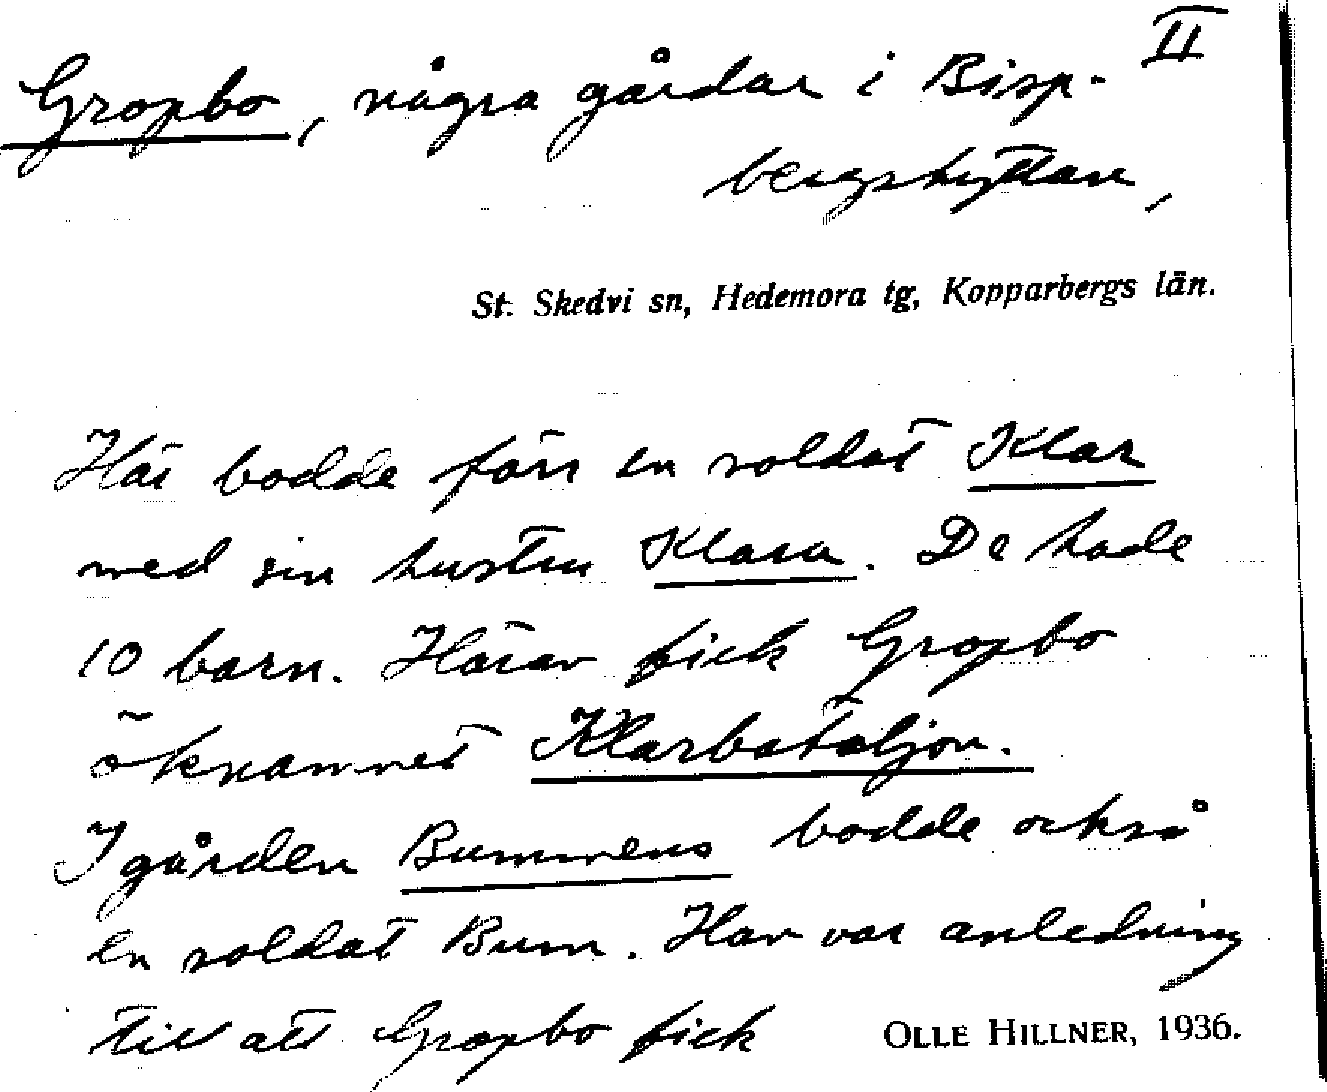 II
Gropbo, några gårdar i Bisp-
bergshyttan,
St. Skedvi sn, Hedemora tg, Kopparbergs län.
Här bodde förr en soldat Klar
med sin hustru Klara. De hade
10 barn. Härav fick Gropbo
öknamnet Klarbataljon.
I gården Bummens bodde också
en soldat Bum. Han var anledning
till att Gropbo fick
OLLE HILLNER, 1936.